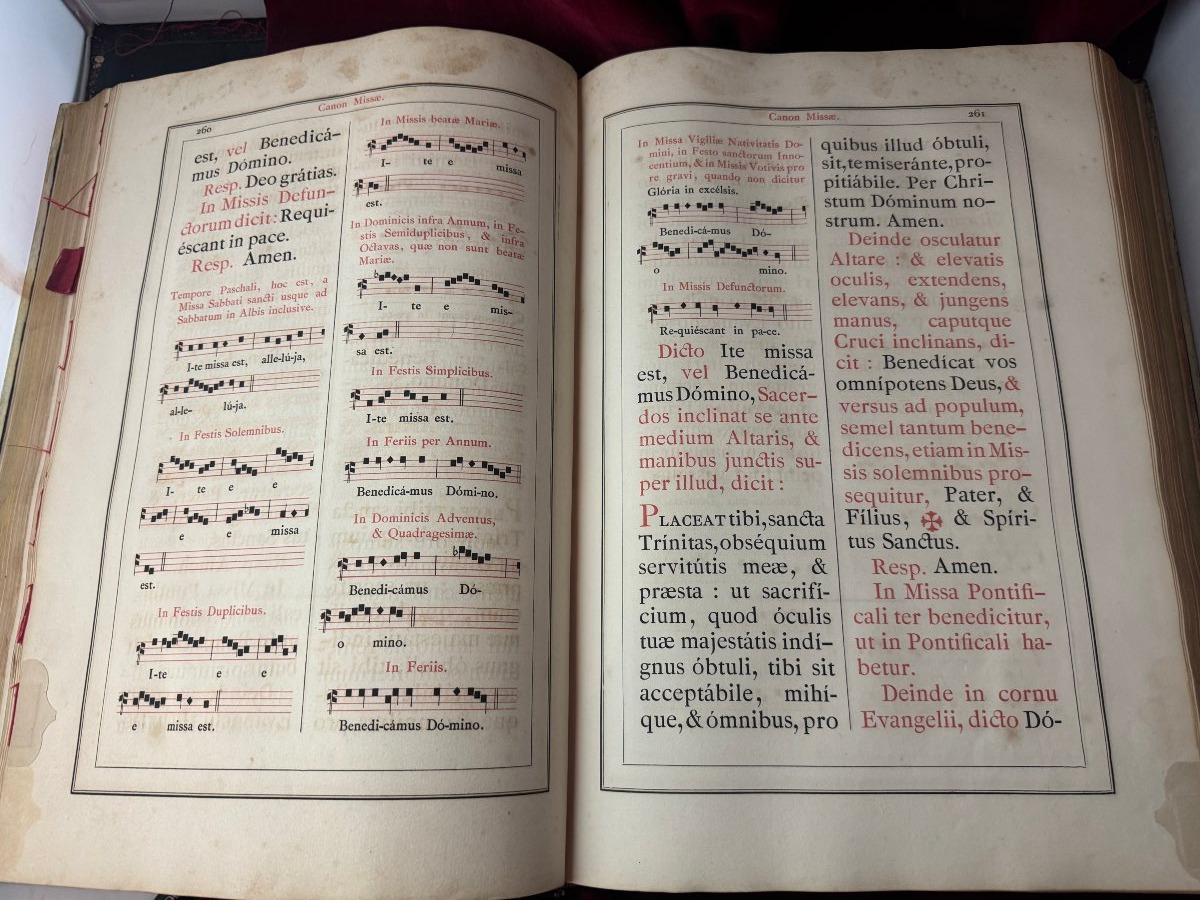 260
Canon Missæ.
est, vel Benedicá-
mus Dómino.
Resp. Deo grátias.
In Missis Defun-
ctorum dicit: Requi-
éscant in pace.
Resp. Amen.
Tempore Paschali, hoc est, a
Missa Sabbati sancti usque ad
Sabbatum in Albis inclusive.
I-te missa est, alle-lú-ja,
al-le- lú-ja.
In Festis Solemnibus.
I- te e e
e e missa
est.
In Festis Duplicibus.
I-te e e
e missa est.
In Missis beatæ Mariæ.
I- te e missa
est.
In Dominicis infra Annum, in Fe-
stis Semiduplicibus, & infra
Octavas, quæ non sunt beatæ
Mariæ.
I- te e mis-
sa est.
In Festis Simplicibus.
I-te missa est.
In Feriis per Annum.
Benedicá-mus Dómi-no.
In Dominicis Adventus,
& Quadragesimæ.
Benedi-cámus Dó-
o mino.
In Feriis.
Benedi-cámus Dó-mino.
Canon Missæ.
261
In Missa Vigiliæ Nativitatis Do-
mini, in Festo sanctorum Inno-
centium, & in Missis Votivis pro
re gravi, quando non dicitur
Glória in excélsis.
Benedi-cá-mus Dó-
o mino.
In Missis Defunctorum.
Re-quiéscant in pa-ce.
Dicto Ite missa
est, vel Benedicá-
mus Dómino, Sacer-
dos inclinat se ante
medium Altaris, &
manibus junctis su-
per illud, dicit :
PLACEAT tibi, sancta
Trínitas, obséquium
servitútis meæ, &
præsta : ut sacrifí-
cium, quod óculis
tuæ majestátis indí-
gnus óbtuli, tibi sit
acceptábile, mihí-
que, & ómnibus, pro
quibus illud óbtuli,
sit, te miseránte, pro-
pitiábile. Per Chri-
stum Dóminum no-
strum. Amen.
Deinde osculatur
Altare : & elevatis
oculis, extendens,
elevans, & jungens
manus, caputque
Cruci inclinans, di-
cit : Benedícat vos
omnípotens Deus, &
versus ad populum,
semel tantum bene-
dicens, etiam in Mis-
sis solemnibus pro-
sequitur, Pater, &
Fílius, ✠ & Spíri-
tus Sanctus.
Resp. Amen.
In Missa Pontifi-
cali ter benedicitur,
ut in Pontificali ha-
betur.
Deinde in cornu
Evangelii, dicto Dó-